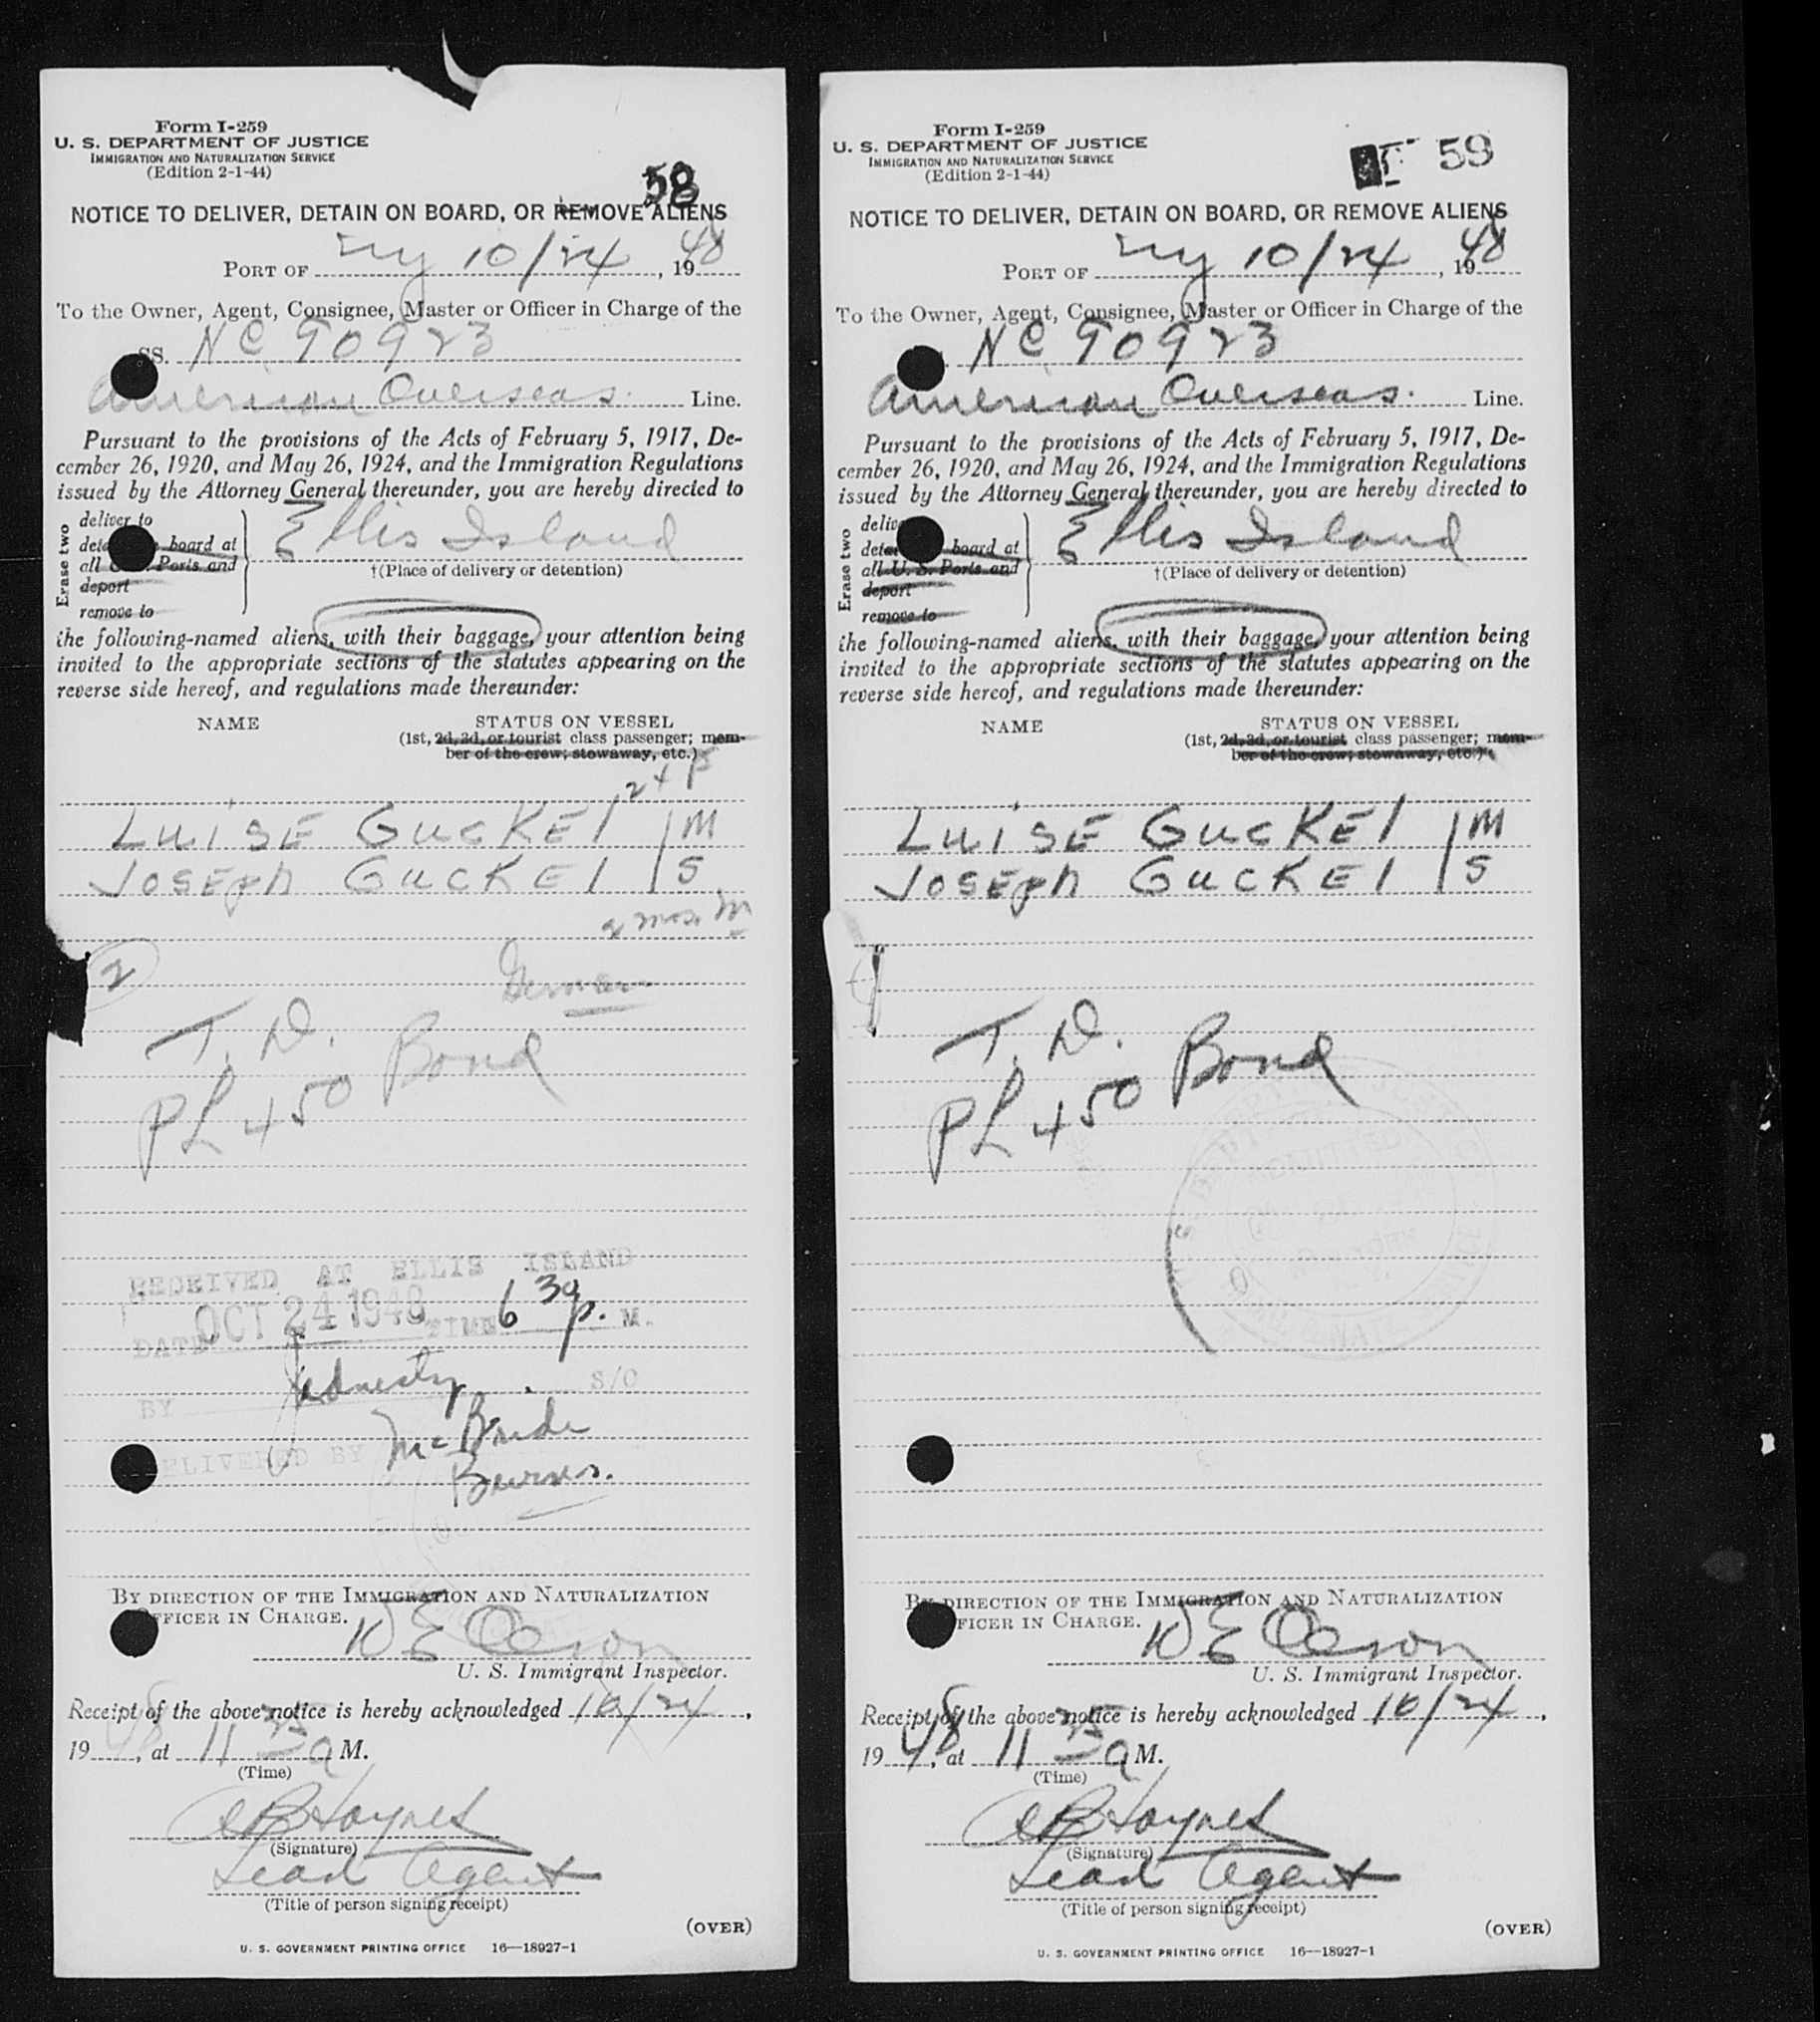 Form I-259
U. S. DEPARTMENT OF JUSTICE
IMMIGRATION AND NATURALIZATION SERVICE
(Edition 2-1-44)
58
NOTICE TO DELIVER, DETAIN ON BOARD, OR REMOVE ALIENS
PORT OF NY 10/24, 1948
To the Owner, Agent, Consignee, Master or Officer in Charge of the
SS. NC 90923
American Overseas Line.
Pursuant to the provisions of the Acts of February 5, 1917, De-
cember 26, 1920, and May 26, 1924, and the Immigration Regulations
issued by the Attorney General thereunder, you are hereby directed to
Erase two
deliver to
board at
all Ports and
deport
remove to
Ellis Island
†(Place of delivery or detention)
the following-named aliens, with their baggage, your attention being
invited to the appropriate sections of the statutes appearing on the
reverse side hereof, and regulations made thereunder:
NAME STATUS ON VESSEL
(1st, 2d, 3d, or tourist class passenger; mem-
ber of the crew; stowaway, etc.)
LUISE GUCKEL M
JOSEPH GUCKEL S
2 mos. M
2
German
T. D. Bond
PL 450
RECEIVED AT ELLIS ISLAND
DATE OCT 24 1948 TIME 6 30 p. M.
BY S/O
DELIVERED BY McBride
Burns.
BY DIRECTION OF THE IMMIGRATION AND NATURALIZATION
OFFICER IN CHARGE.
W E Oeson
U. S. Immigrant Inspector.
Receipt of the above notice is hereby acknowledged 10/24,
1948, at 11 25 a M.
(Time)
Haynes
(Signature)
Lead Agent
(Title of person signing receipt)
(OVER)
U. S. GOVERNMENT PRINTING OFFICE 16—18927-1
Form I-259
U. S. DEPARTMENT OF JUSTICE
IMMIGRATION AND NATURALIZATION SERVICE
(Edition 2-1-44)
59
NOTICE TO DELIVER, DETAIN ON BOARD, OR REMOVE ALIENS
PORT OF NY 10/24, 1948
To the Owner, Agent, Consignee, Master or Officer in Charge of the
NC 90923
American Overseas. Line.
Pursuant to the provisions of the Acts of February 5, 1917, De-
cember 26, 1920, and May 26, 1924, and the Immigration Regulations
issued by the Attorney General thereunder, you are hereby directed to
Erase two
board at
all U. S. Ports and
deport
remove to
Ellis Island
†(Place of delivery or detention)
the following-named aliens, with their baggage, your attention being
invited to the appropriate sections of the statutes appearing on the
reverse side hereof, and regulations made thereunder:
NAME STATUS ON VESSEL
(1st, 2d, 3d, or tourist class passenger; mem-
ber of the crew; stowaway, etc.)
LUISE GUCKEL M
JOSEPH GUCKEL S
T. D. Bond
PL 450
BY DIRECTION OF THE IMMIGRATION AND NATURALIZATION
OFFICER IN CHARGE.
W E Oeson
U. S. Immigrant Inspector.
Receipt of the above notice is hereby acknowledged 10/24,
1948, at 11 25 a M.
(Time)
Haynes
(Signature)
Lead Agent
(Title of person signing receipt)
(OVER)
U. S. GOVERNMENT PRINTING OFFICE 16—18927-1